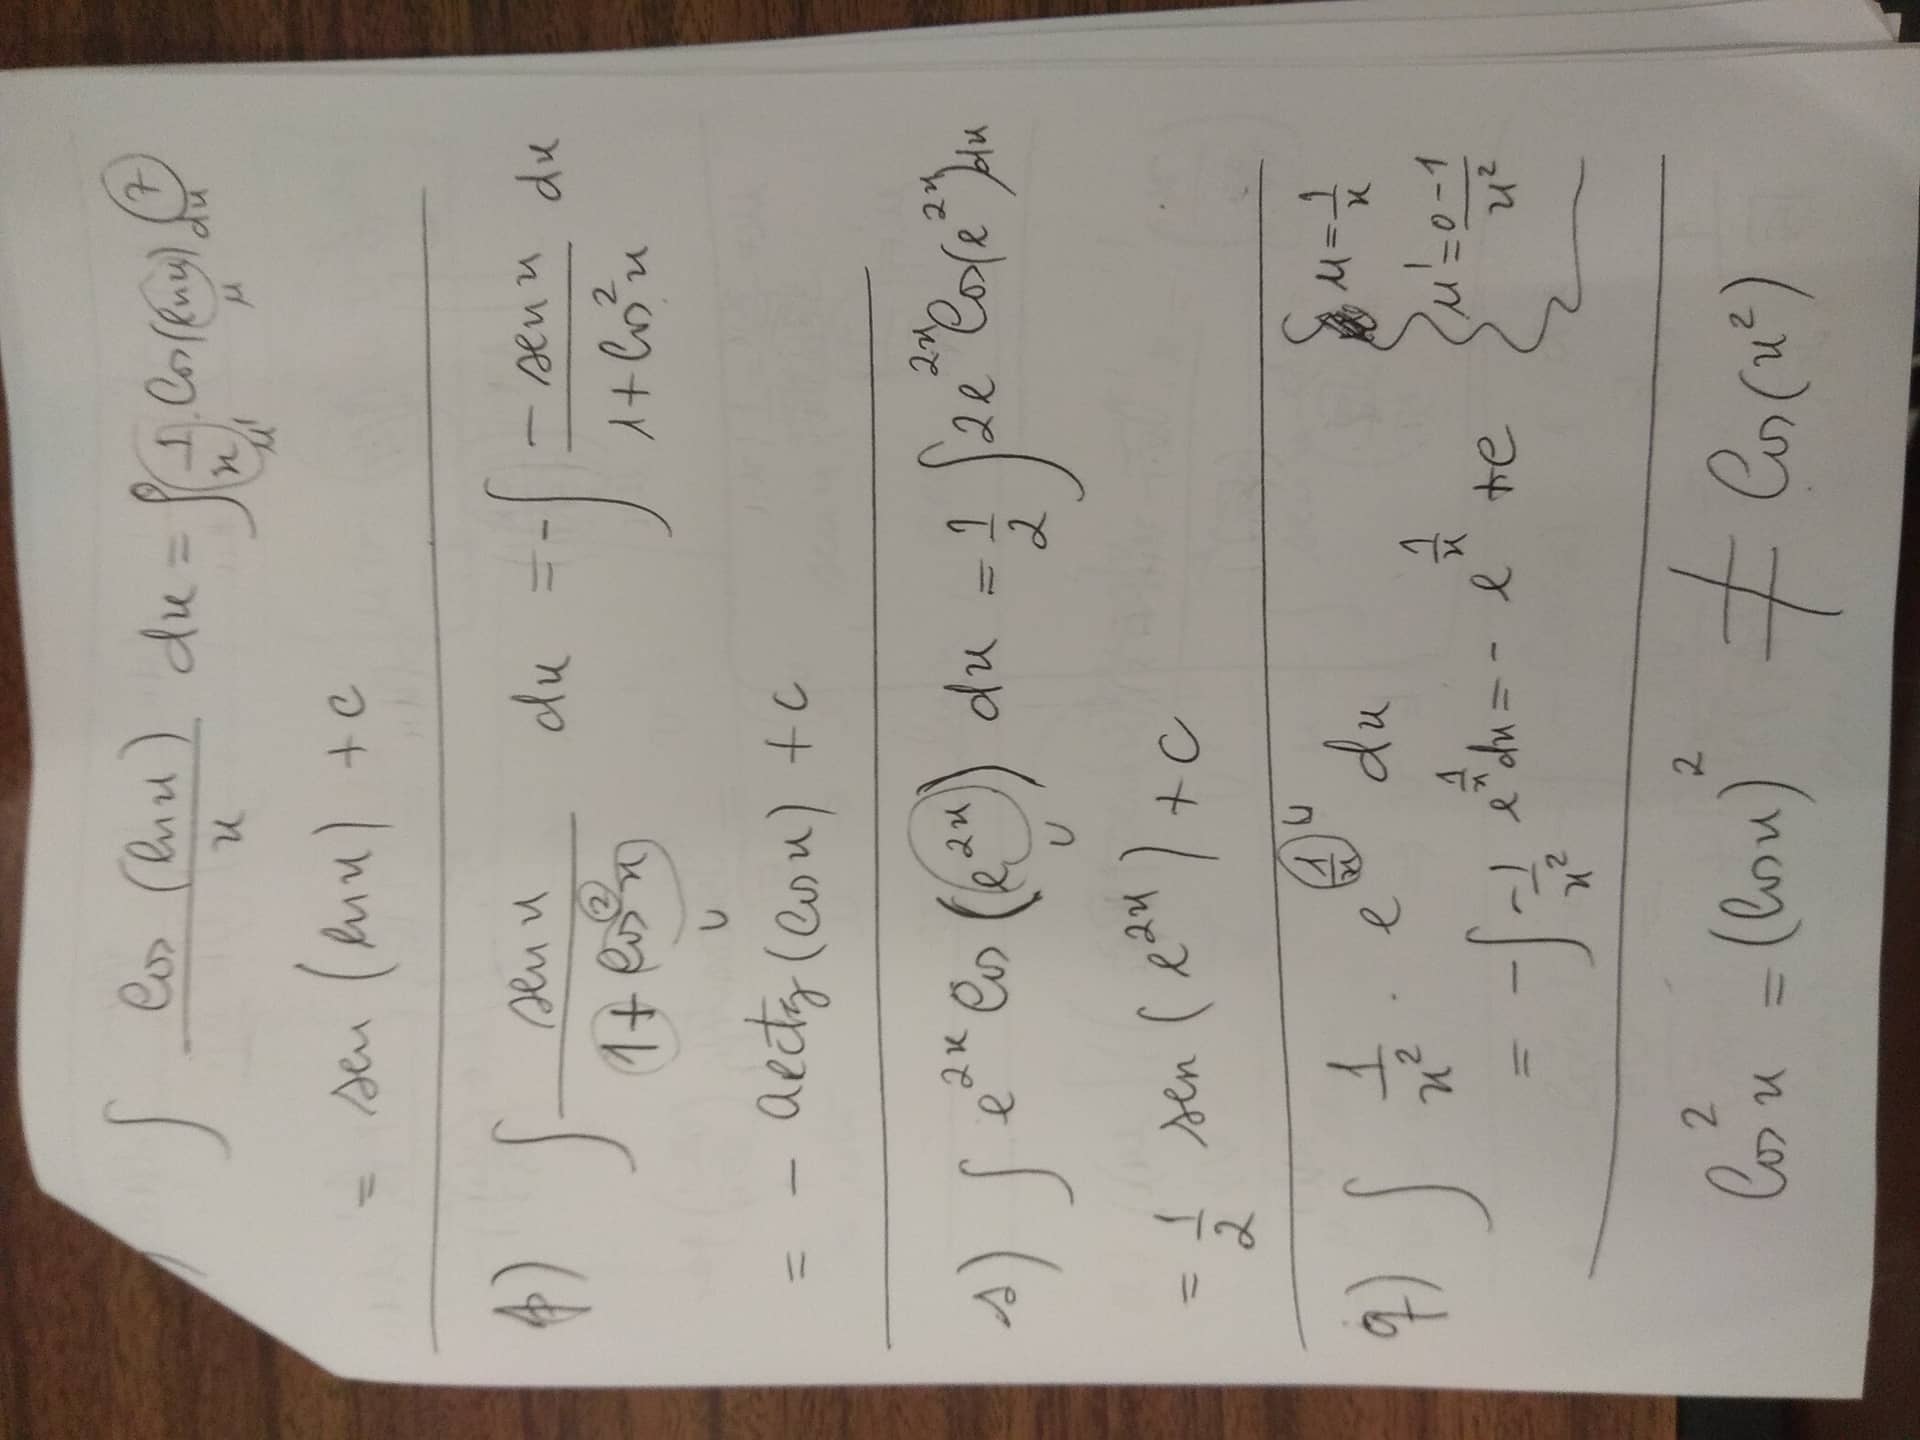 ∫ cos (ln x) / x dx = ∫ (1/x) . cos(ln x) dx 7
μ' μ
= sen (ln x) + c
p) ∫ sen x / (1 + cos² x) dx = - ∫ - sen x / (1 + cos² x) dx
u
= - arctg (cos x) + c
s) ∫ e^{2x} cos (e^{2x}) dx = 1/2 ∫ 2e^{2x} cos(e^{2x}) dx
u
= 1/2 sen (e^{2x}) + c
q) ∫ 1/x² . e^{1/x} dx
u
μ = 1/x
= - ∫ -1/x² e^{1/x} dx = - e^{1/x} + c
μ' = (0 - 1)/x²
cos² x = (cos x)² ≠ cos(x²)